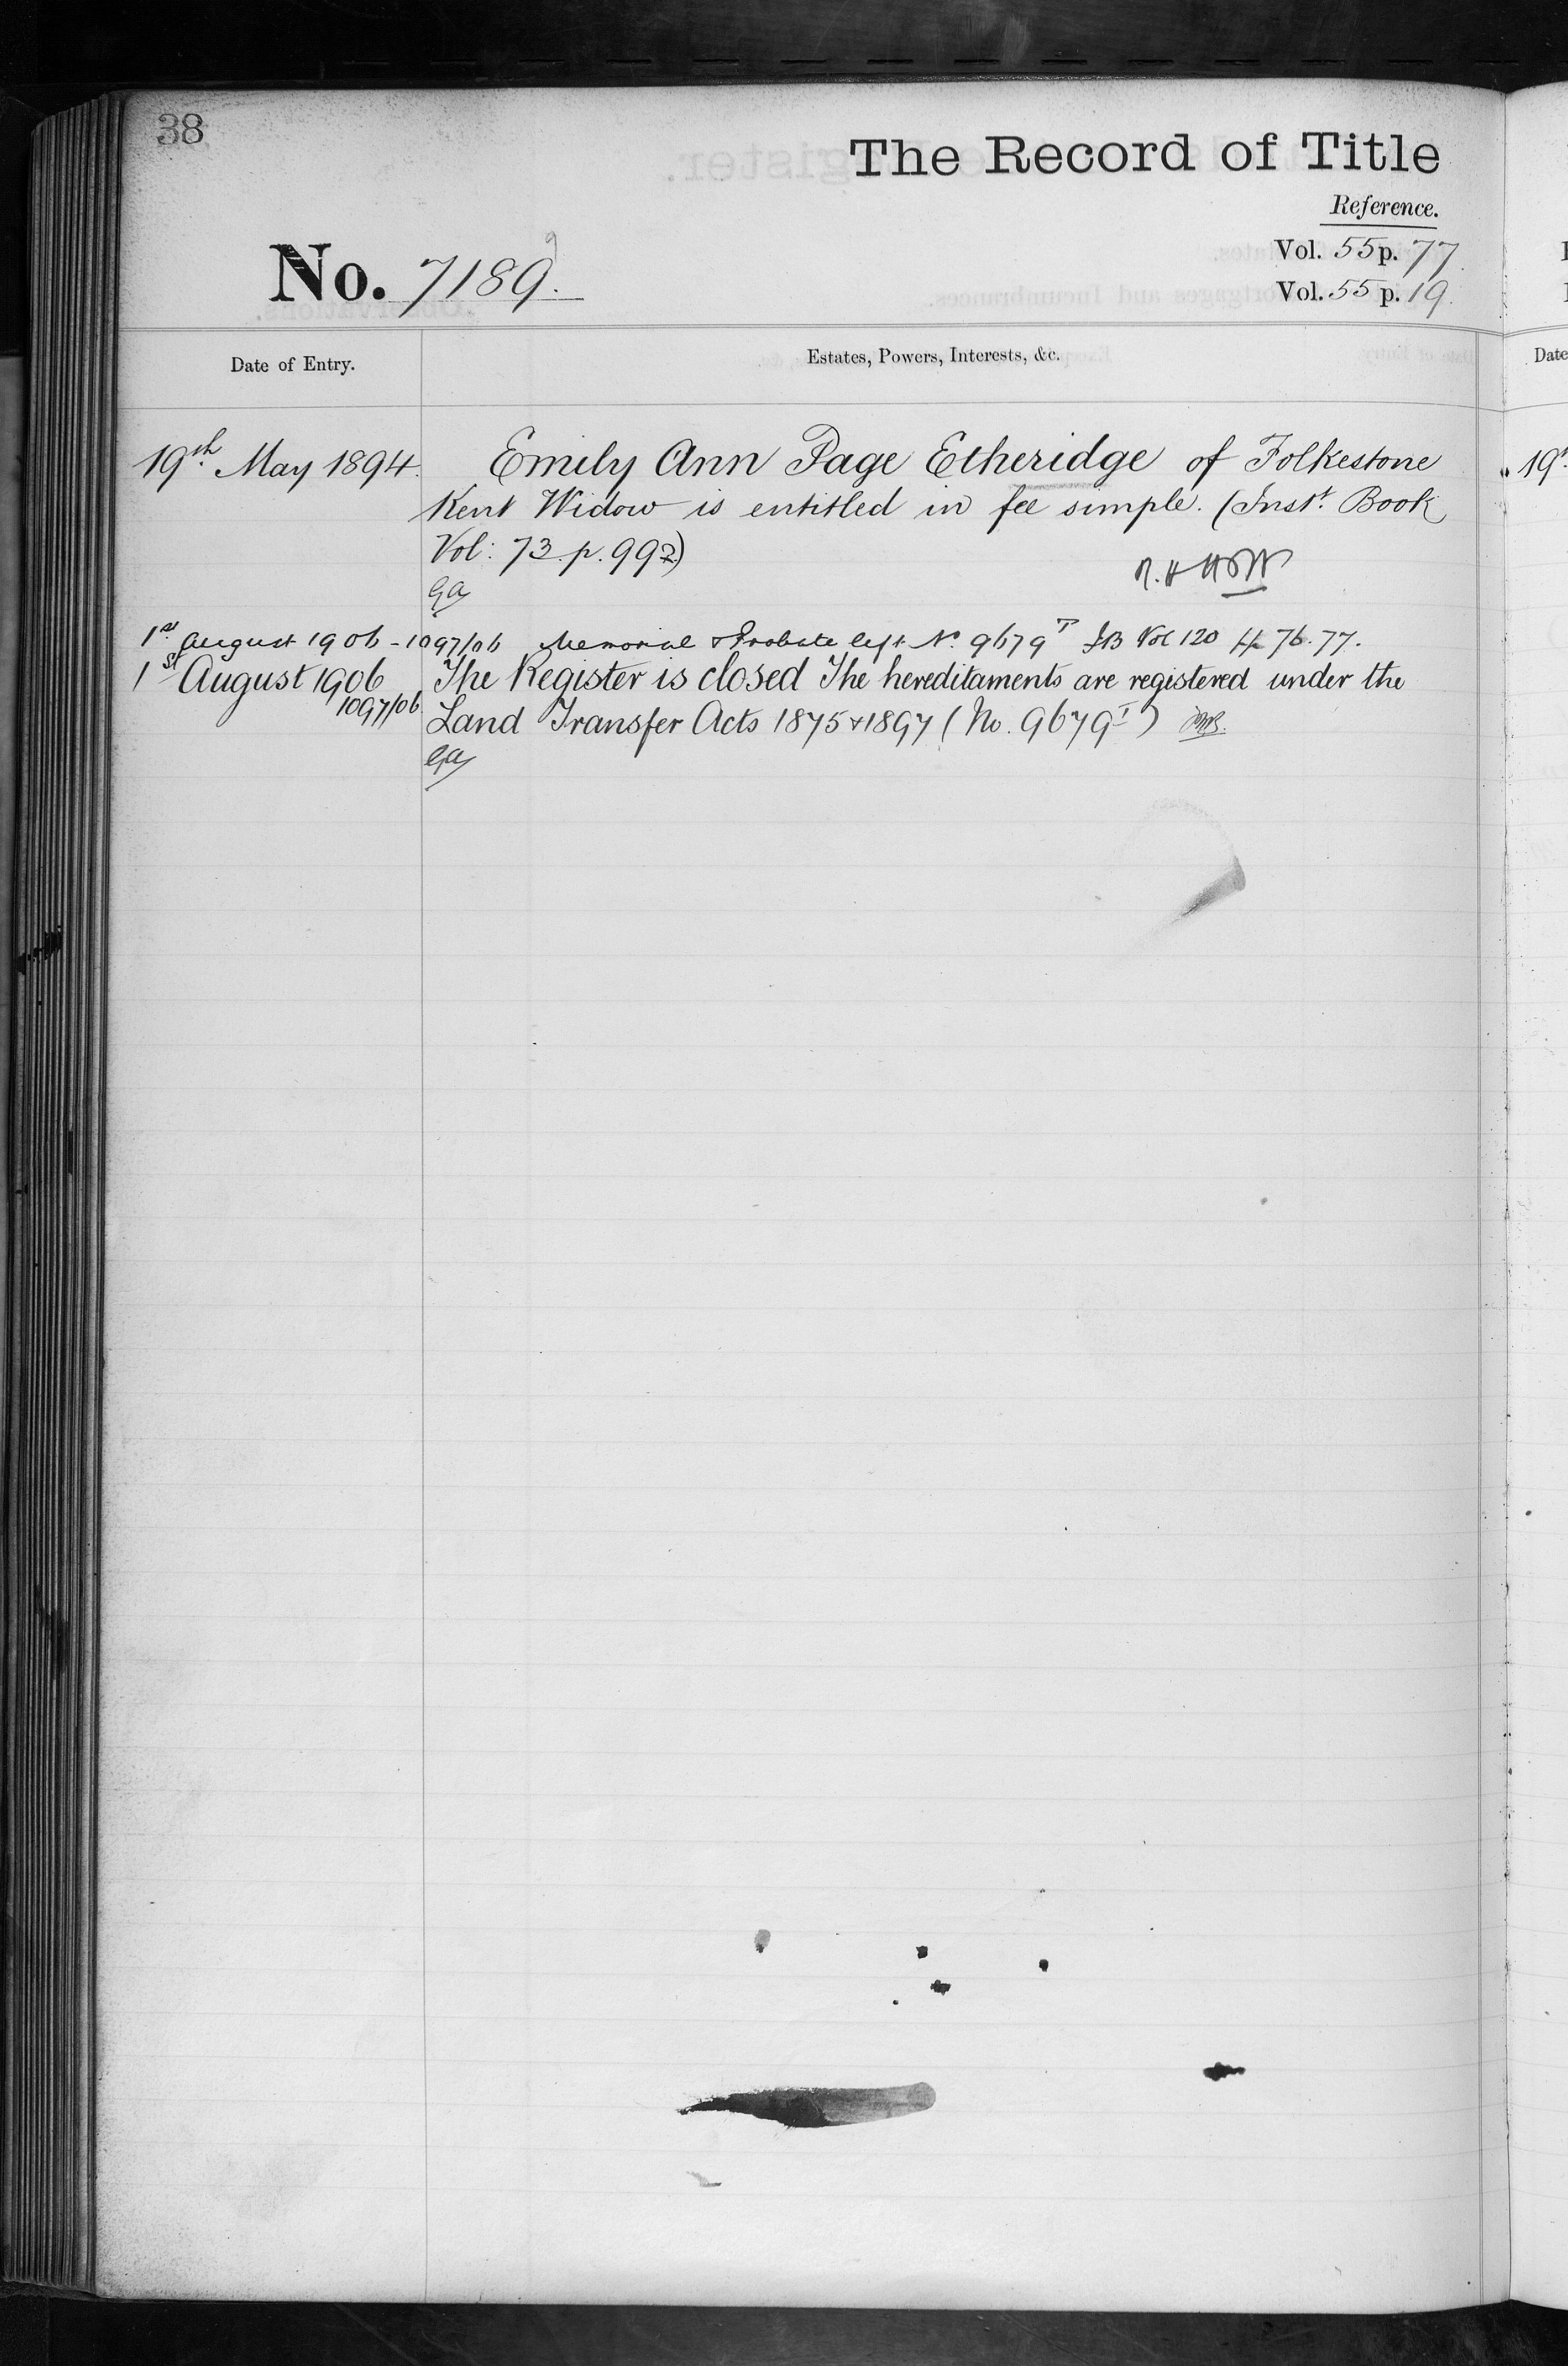 38
The Record of Title
Reference.
No. 7189.
Vol. 55 p. 77.
Vol. 55 p. 19.
Date of Entry.
Estates, Powers, Interests, &c.
Date
19th May 1894. Emily Ann Page Etheridge of Folkestone
Kent Widow is entitled in fee simple. (Inst. Book
Vol: 73. p. 992)
1st August 1906 - 1097/06 Memorial & Probate left No 9679T Vol 120 ff 76. 77.
1st August 1906 The Register is closed The hereditaments are registered under the
1097/06 Land Transfer Acts 1875 & 1897 (No. 9679T)
19t